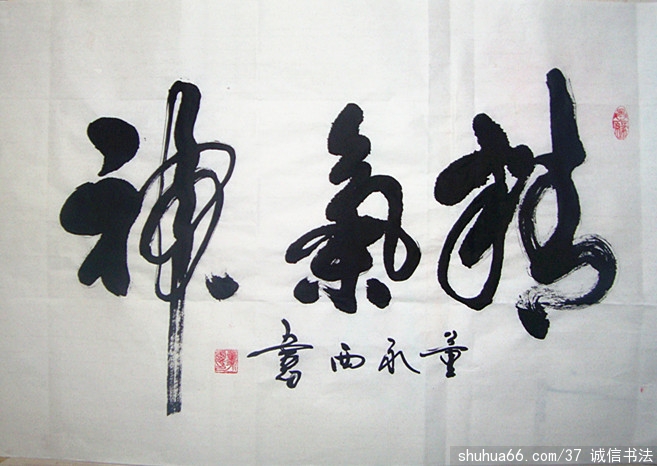 精氣神
董承西書
shuhua66.com/37 诚信书法